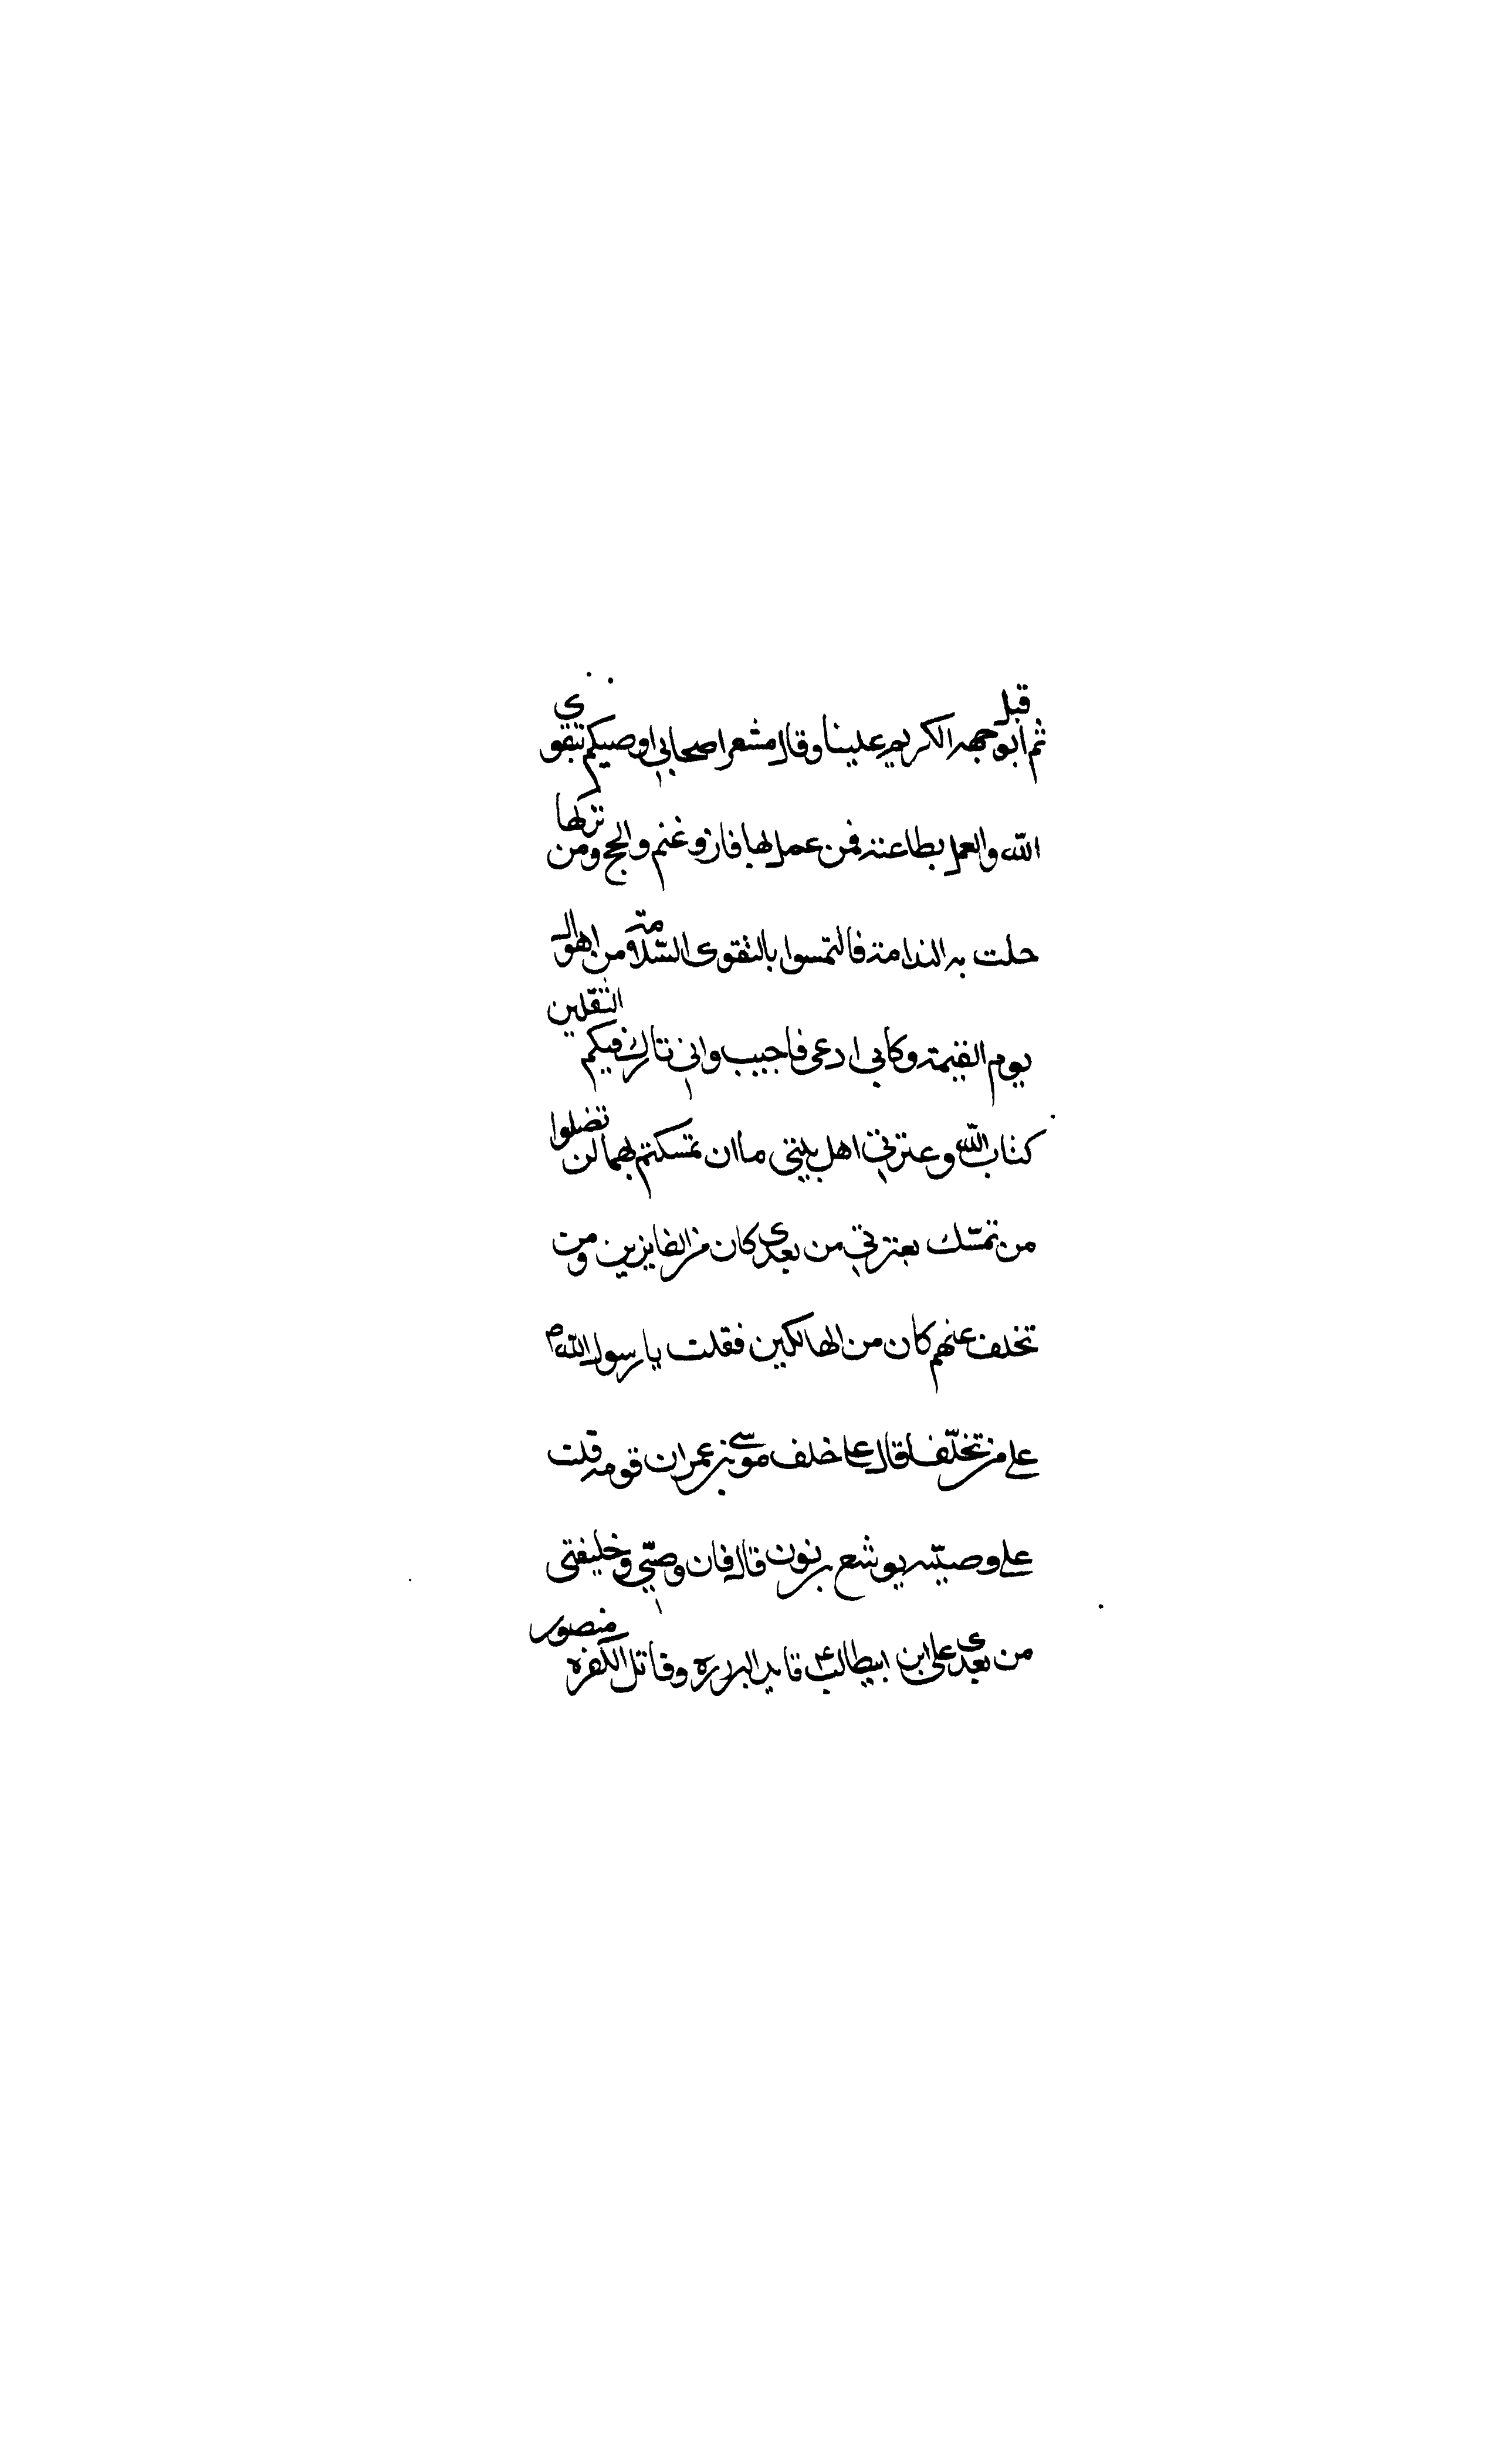 ثم اقبل بوجهه الكريم علينا وقال معشر اصحابي اوصيكم بتقوى
الله والعمل بطاعته فمن عمل بها فاز وغنم وانجح ومن تركها
حلت به الندامة فالتمسوا بالتقوى السلامة من اهوال
يوم القيمة وكاني ادعى فاجيب واني تارك فيكم الثقلين
كتاب الله وعترتي اهل بيتي ما ان تمسكتم بهما لن تضلوا
من تمسّك بعترتي من بعدي كان من الفايزين ومن
تخلف عنهم كان من الهالكين فقلت يا رسول الله ص
على من تخلّفنا قال على ما خلف موسى بن عمران قومه قلت
على وصيّه يوشع بن نون قال فان وصيّي وخليفتي
من بعدي علي ابن ابيطالب ع قايد البررة وقاتل الكفرة منصور